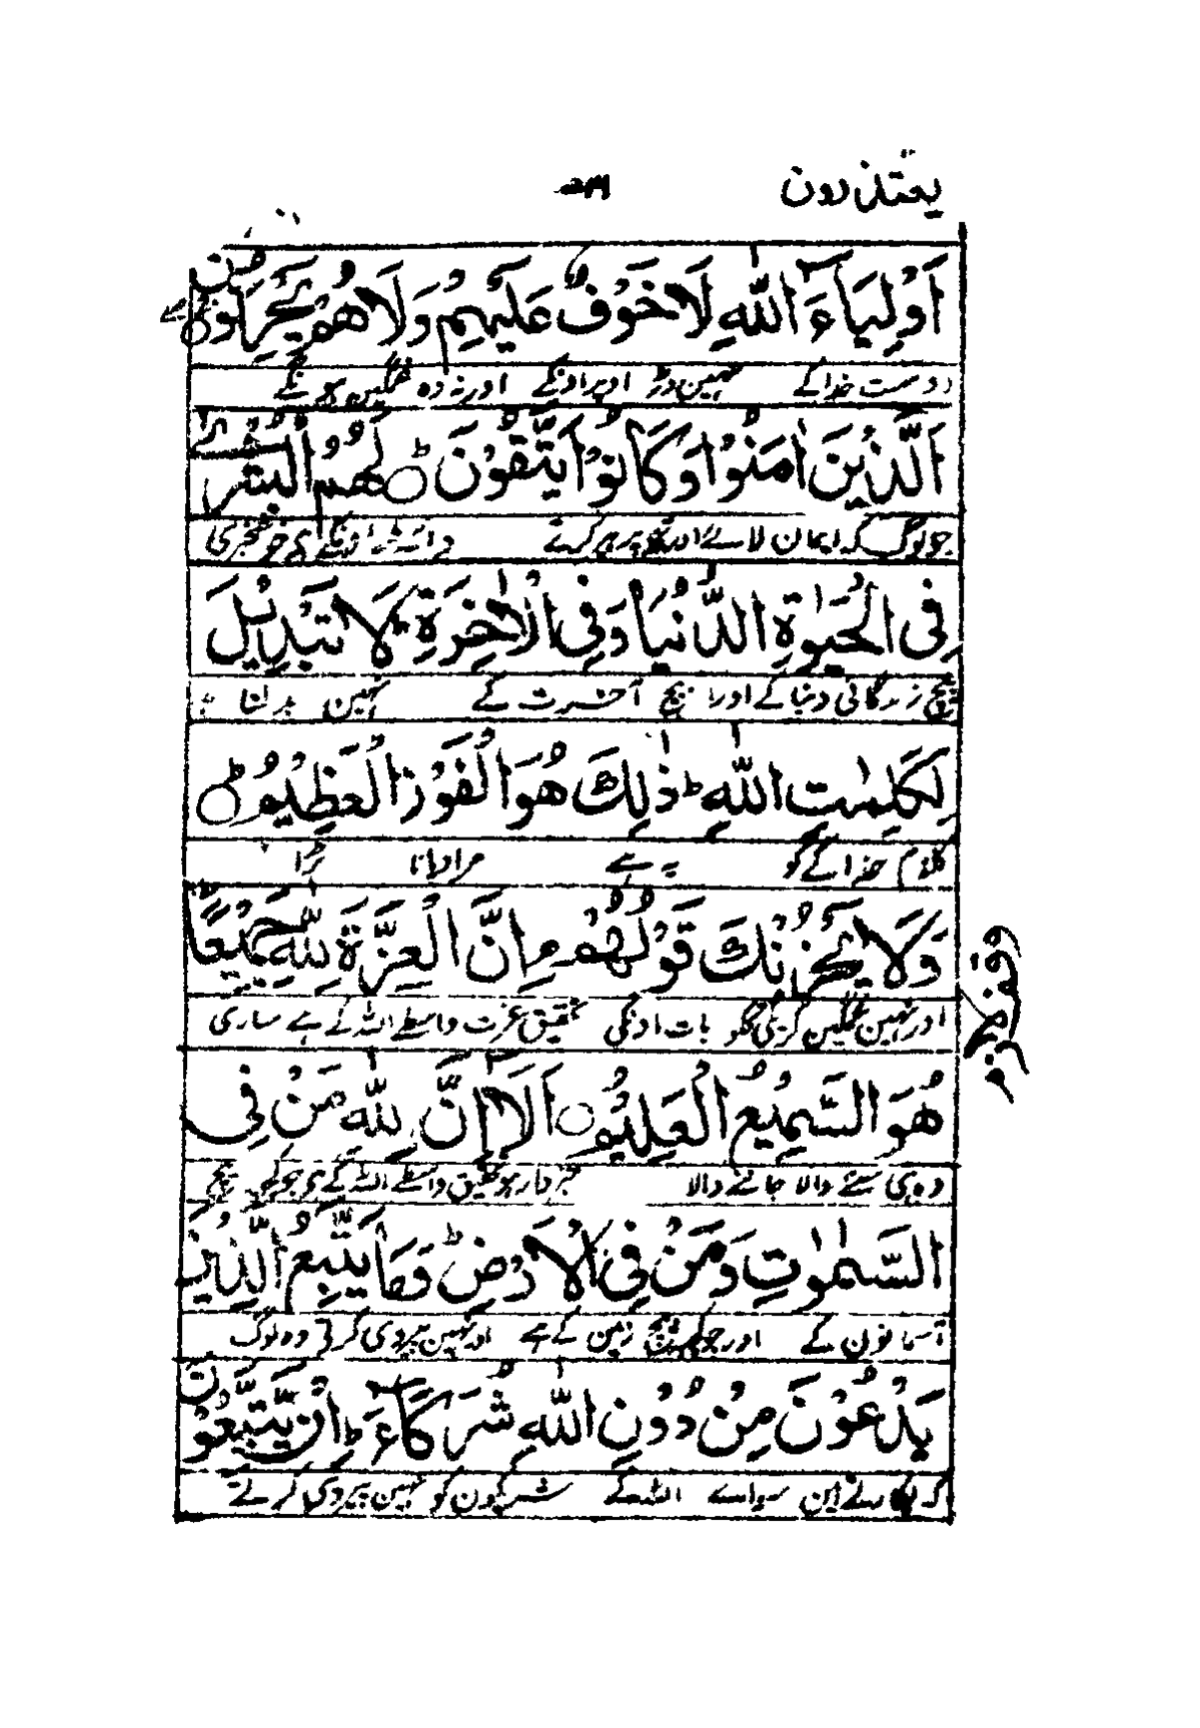 یعتذرون
اَوْلِيَآءَ اللّٰهِ لَا خَوْفٌ عَلَيْهِمْ وَلَا هُمْ يَحْزَنُوْنَ
دوست خدا کے نہین ڈر اوپر اونکے اور نہ وہ غمگین ہونگے
اَلَّذِيْنَ اٰمَنُوْا وَكَانُوْا يَتَّقُوْنَ ؕ لَهُمُ الْبُشْرٰى
جو لوگ کہ ایمان لائے اور تھے پرہیز کرتے واسطے اونکے ہی خوشخبری
فِى الْحَيٰوةِ الدُّنْيَا وَفِى الْاٰخِرَةِ لَا تَبْدِيْلَ
بیچ زندگانی دنیا کے اور بیچ آخرت کے نہین بدلنا
لِكَلِمٰتِ اللّٰهِ ؕ ذٰلِكَ هُوَ الْفَوْزُ الْعَظِيْمُ ؕ
کلام خدا کے کو یہ ہے مراد پانا بڑا
وَلَا يَحْزُنْكَ قَوْلُهُمْ ۘ اِنَّ الْعِزَّةَ لِلّٰهِ جَمِيْعًا
اور نہین غمگین کری تجکو بات اونکی تحقیق عزت واسطے اللہ کے ہے ساری
وقف لازم
هُوَ السَّمِيْعُ الْعَلِيْمُ اَلَآ اِنَّ لِلّٰهِ مَنْ فِى
وہ ہی سننے والا جاننے والا خبردار ہو تحقیق واسطے اللہ کے ہی جو کچھ بیچ
السَّمٰوٰتِ وَمَنْ فِى الْاَرْضِ ؕ وَمَا يَتَّبِعُ الَّذِيْنَ
آسمانون کے اور جو کچھ بیچ زمین کے ہے اور نہین پیروی کرتے وہ لوگ
يَدْعُوْنَ مِنْ دُوْنِ اللّٰهِ شُرَكَآءَ ؕ اِنْ يَّتَّبِعُوْنَ
کہ پکارتے ہین سواے اللہ کے شریکون کو نہین پیروی کرتے